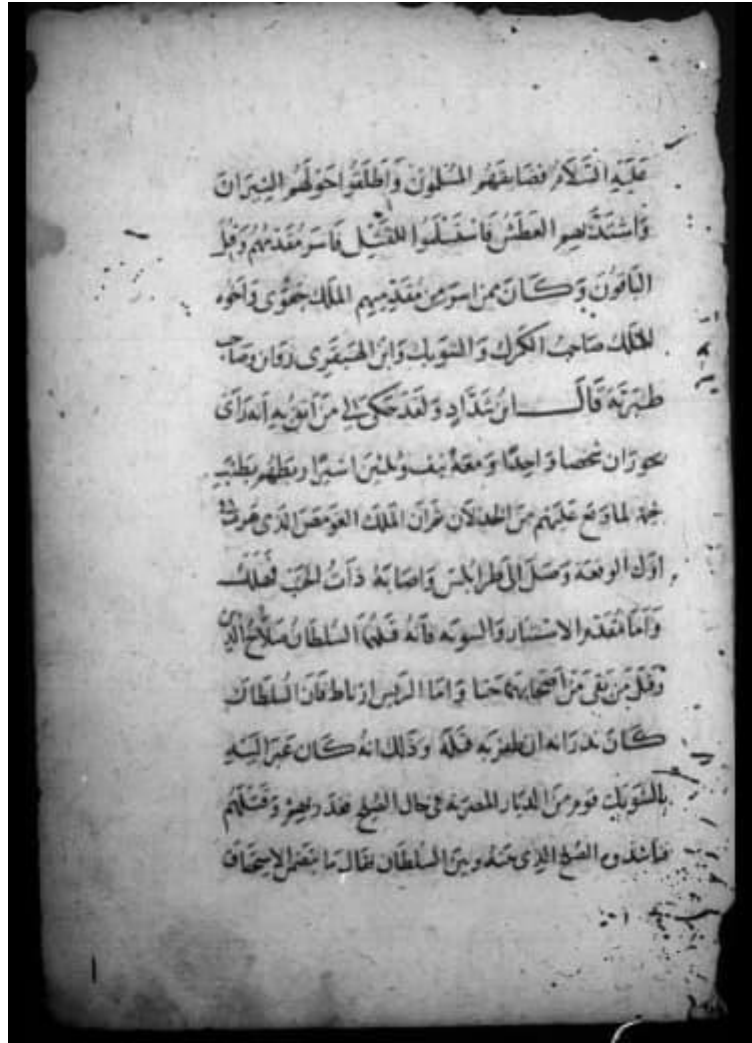 عليه السلام فضايقهم المسلمون واطلقوا حولهم النيران
واشتد بهم العطش فاستسلموا للقتل فاسر مقدمهم وقتل
الباقون وكان ممن اسر من مقدميهم الملك جفرى واخوه
الملك صاحب الكرك والشوبك وابن الهنفرى وصاحب
طبرية قال ابن شداد ولقد حكى لى من اثق به انه راى
بحوران شخصا واحدا ومعه نيف وثلثين اسيرا يطنب
خيمة لما وقع عليهم من الخذلان ثم ان الملك القومص الذى هرب فى
اول الوقعة وصل الى طرابلس واصابه ذات الجنب فهلك
واما مقدم الاسبتار والديويه فانه قتلهما السلطان صلاح الدين
وقتل من بقى من اصحابهما حيا واما البرنس ارناط فان السلطان
كان نذر انه ان ظفر به قتله وذلك انه كان عبر اليه
بالشوبك قوم من الديار المصرية فى حال الصلح فغدر بهم وقتلهم
فناشدوه الصلح الذى بينه وبين السلطان فقال ما يتضمن الاستخفاف